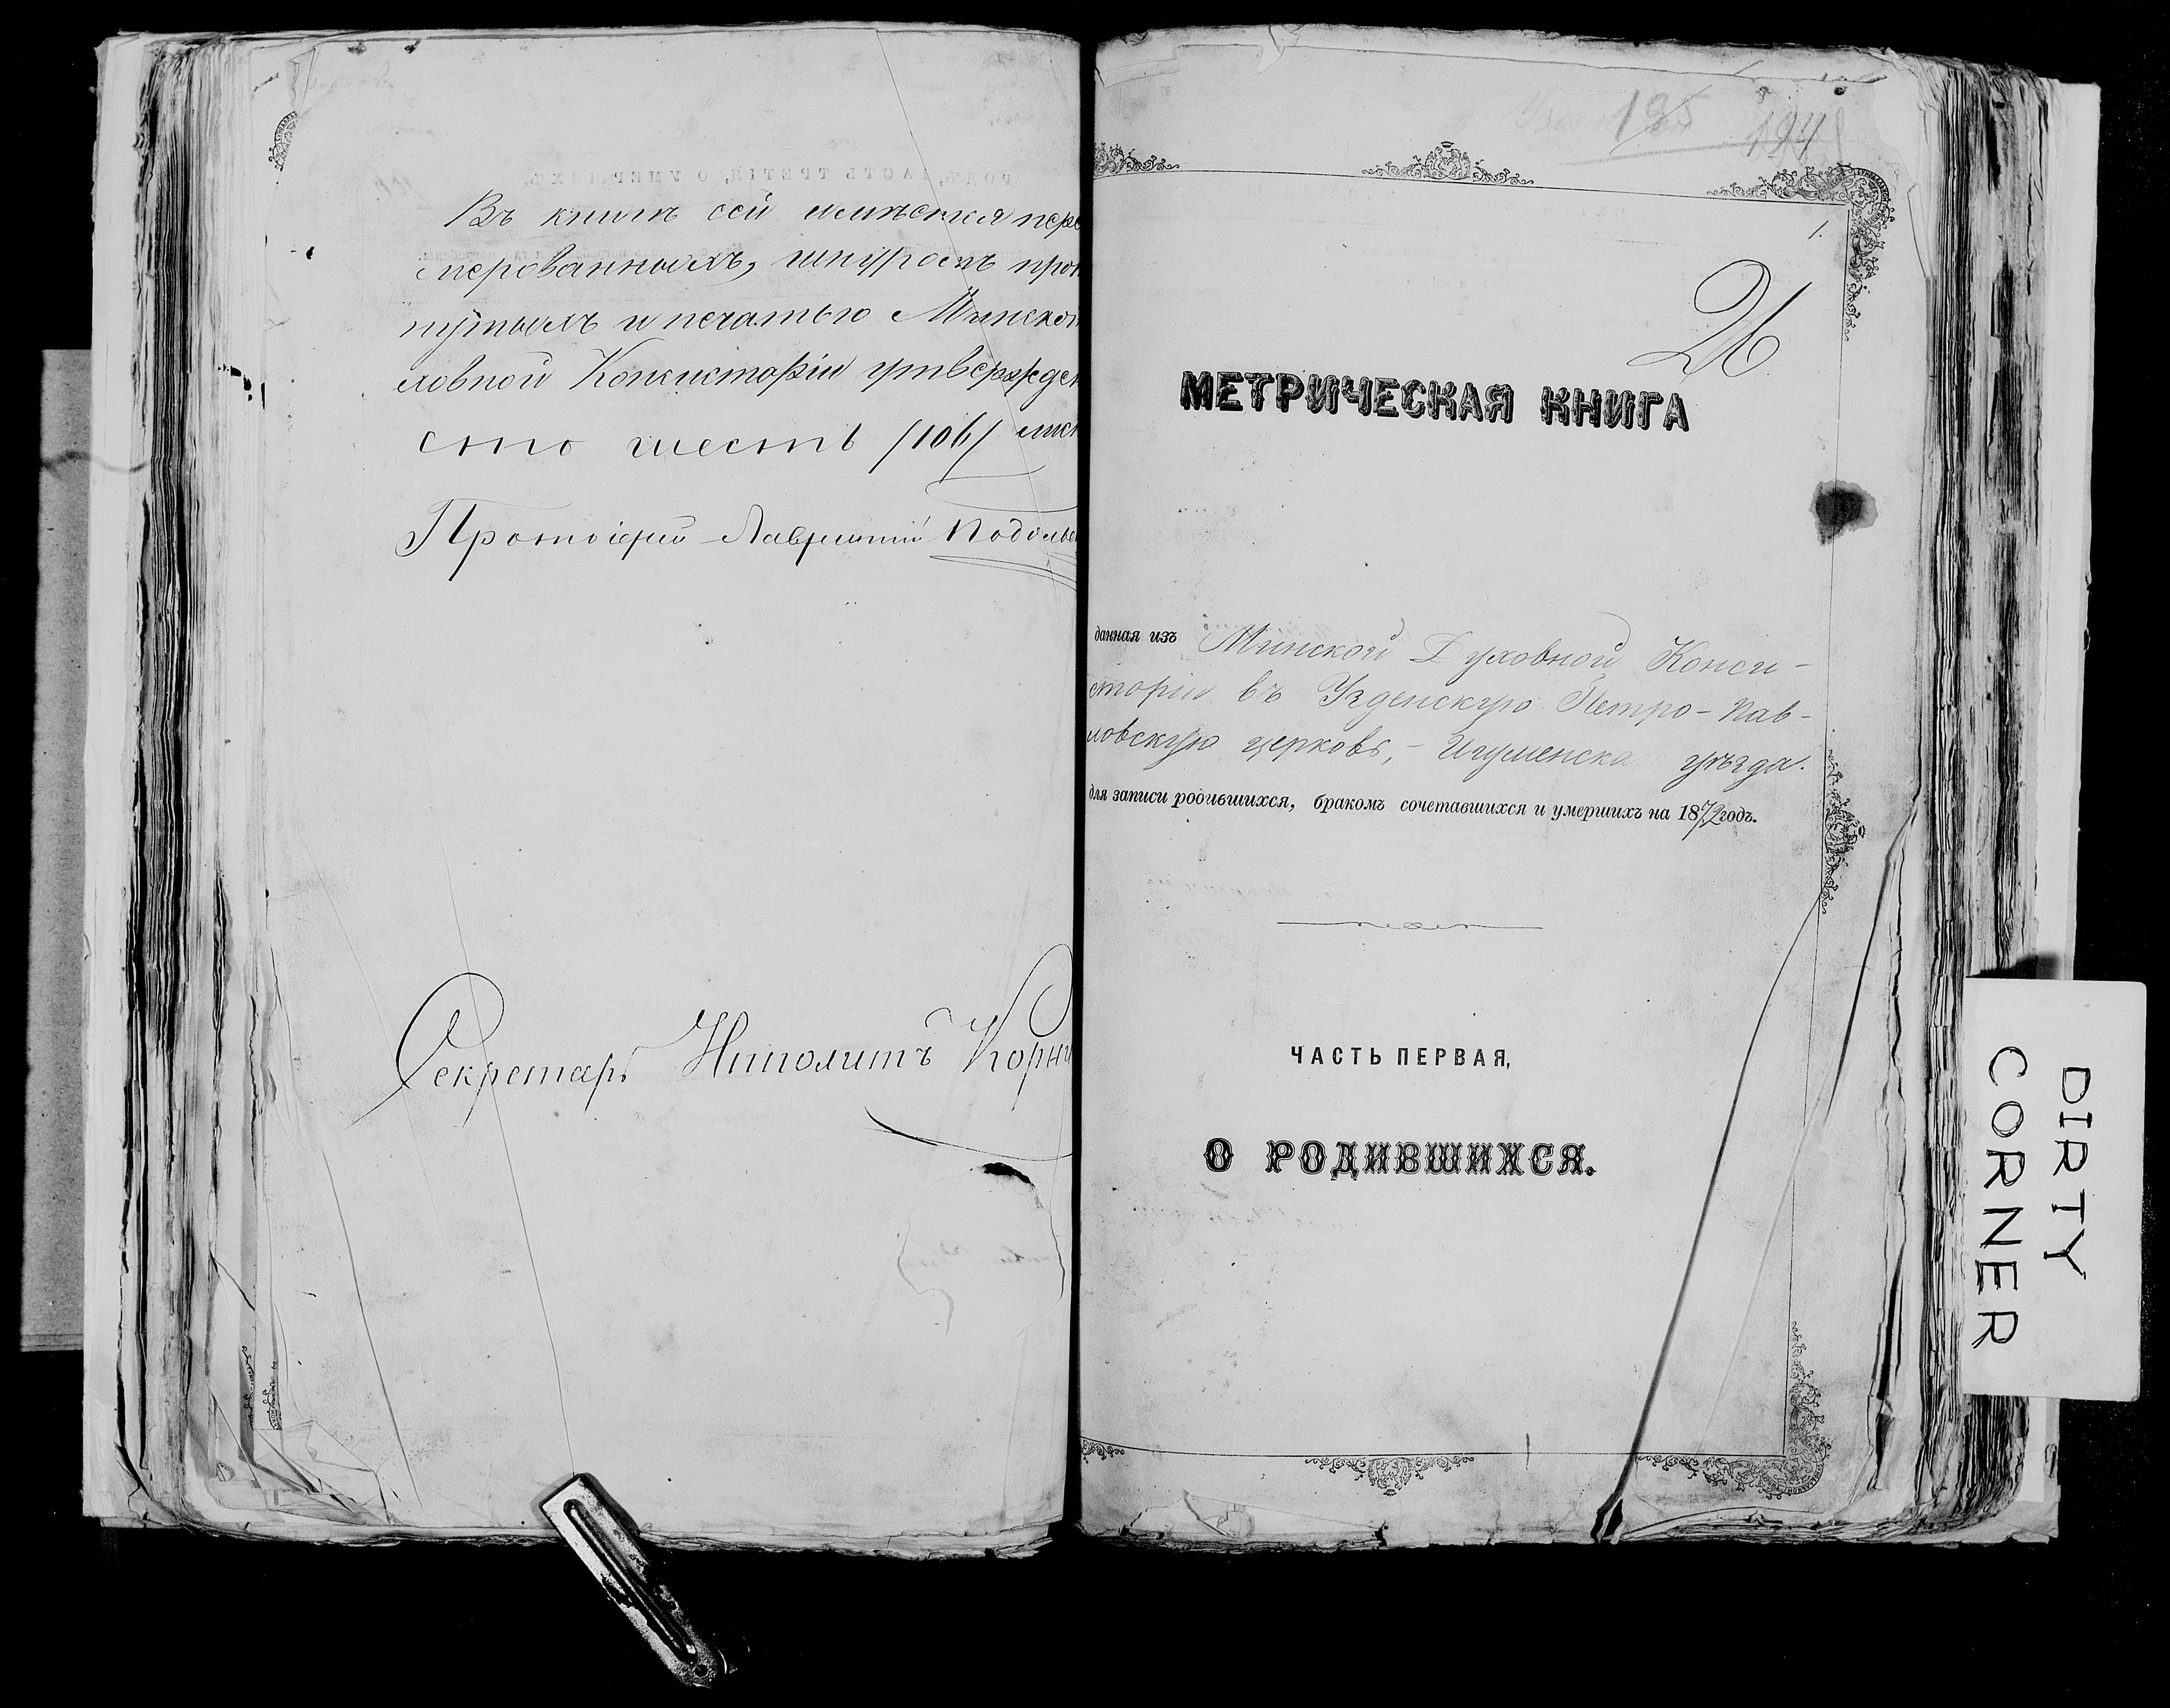 Въ книгѣ сей имѣется пере
мерованныхъ, шнуромъ про
нутыхъ и печатью Минской
ховной Консисторіи утвержден
сто шесть /106/ лист
Протоіерей Лаврентій Подольс
Секретарь Иполитъ Корни
195
194
1.
26
МЕТРИЧЕСКАЯ КНИГА
данная изъ Минской Духовной Конси-
сторіи въ Узденскую Петро-Пав-
ловскую церковь, Игуменска уѣзда.
для записи родившихся, бракомъ сочетавшихся и умершихъ на 1872 годъ.
ЧАСТЬ ПЕРВАЯ,
О РОДИВШИХСЯ.
DIRTY
CORNER